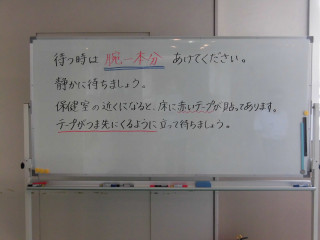 待つ時は 腕一本分 あけてください。
静かに待ちましょう。
保健室の近くになると、床に赤いテープが貼ってあります。
テープがつま先にくるように立って待ちましょう。